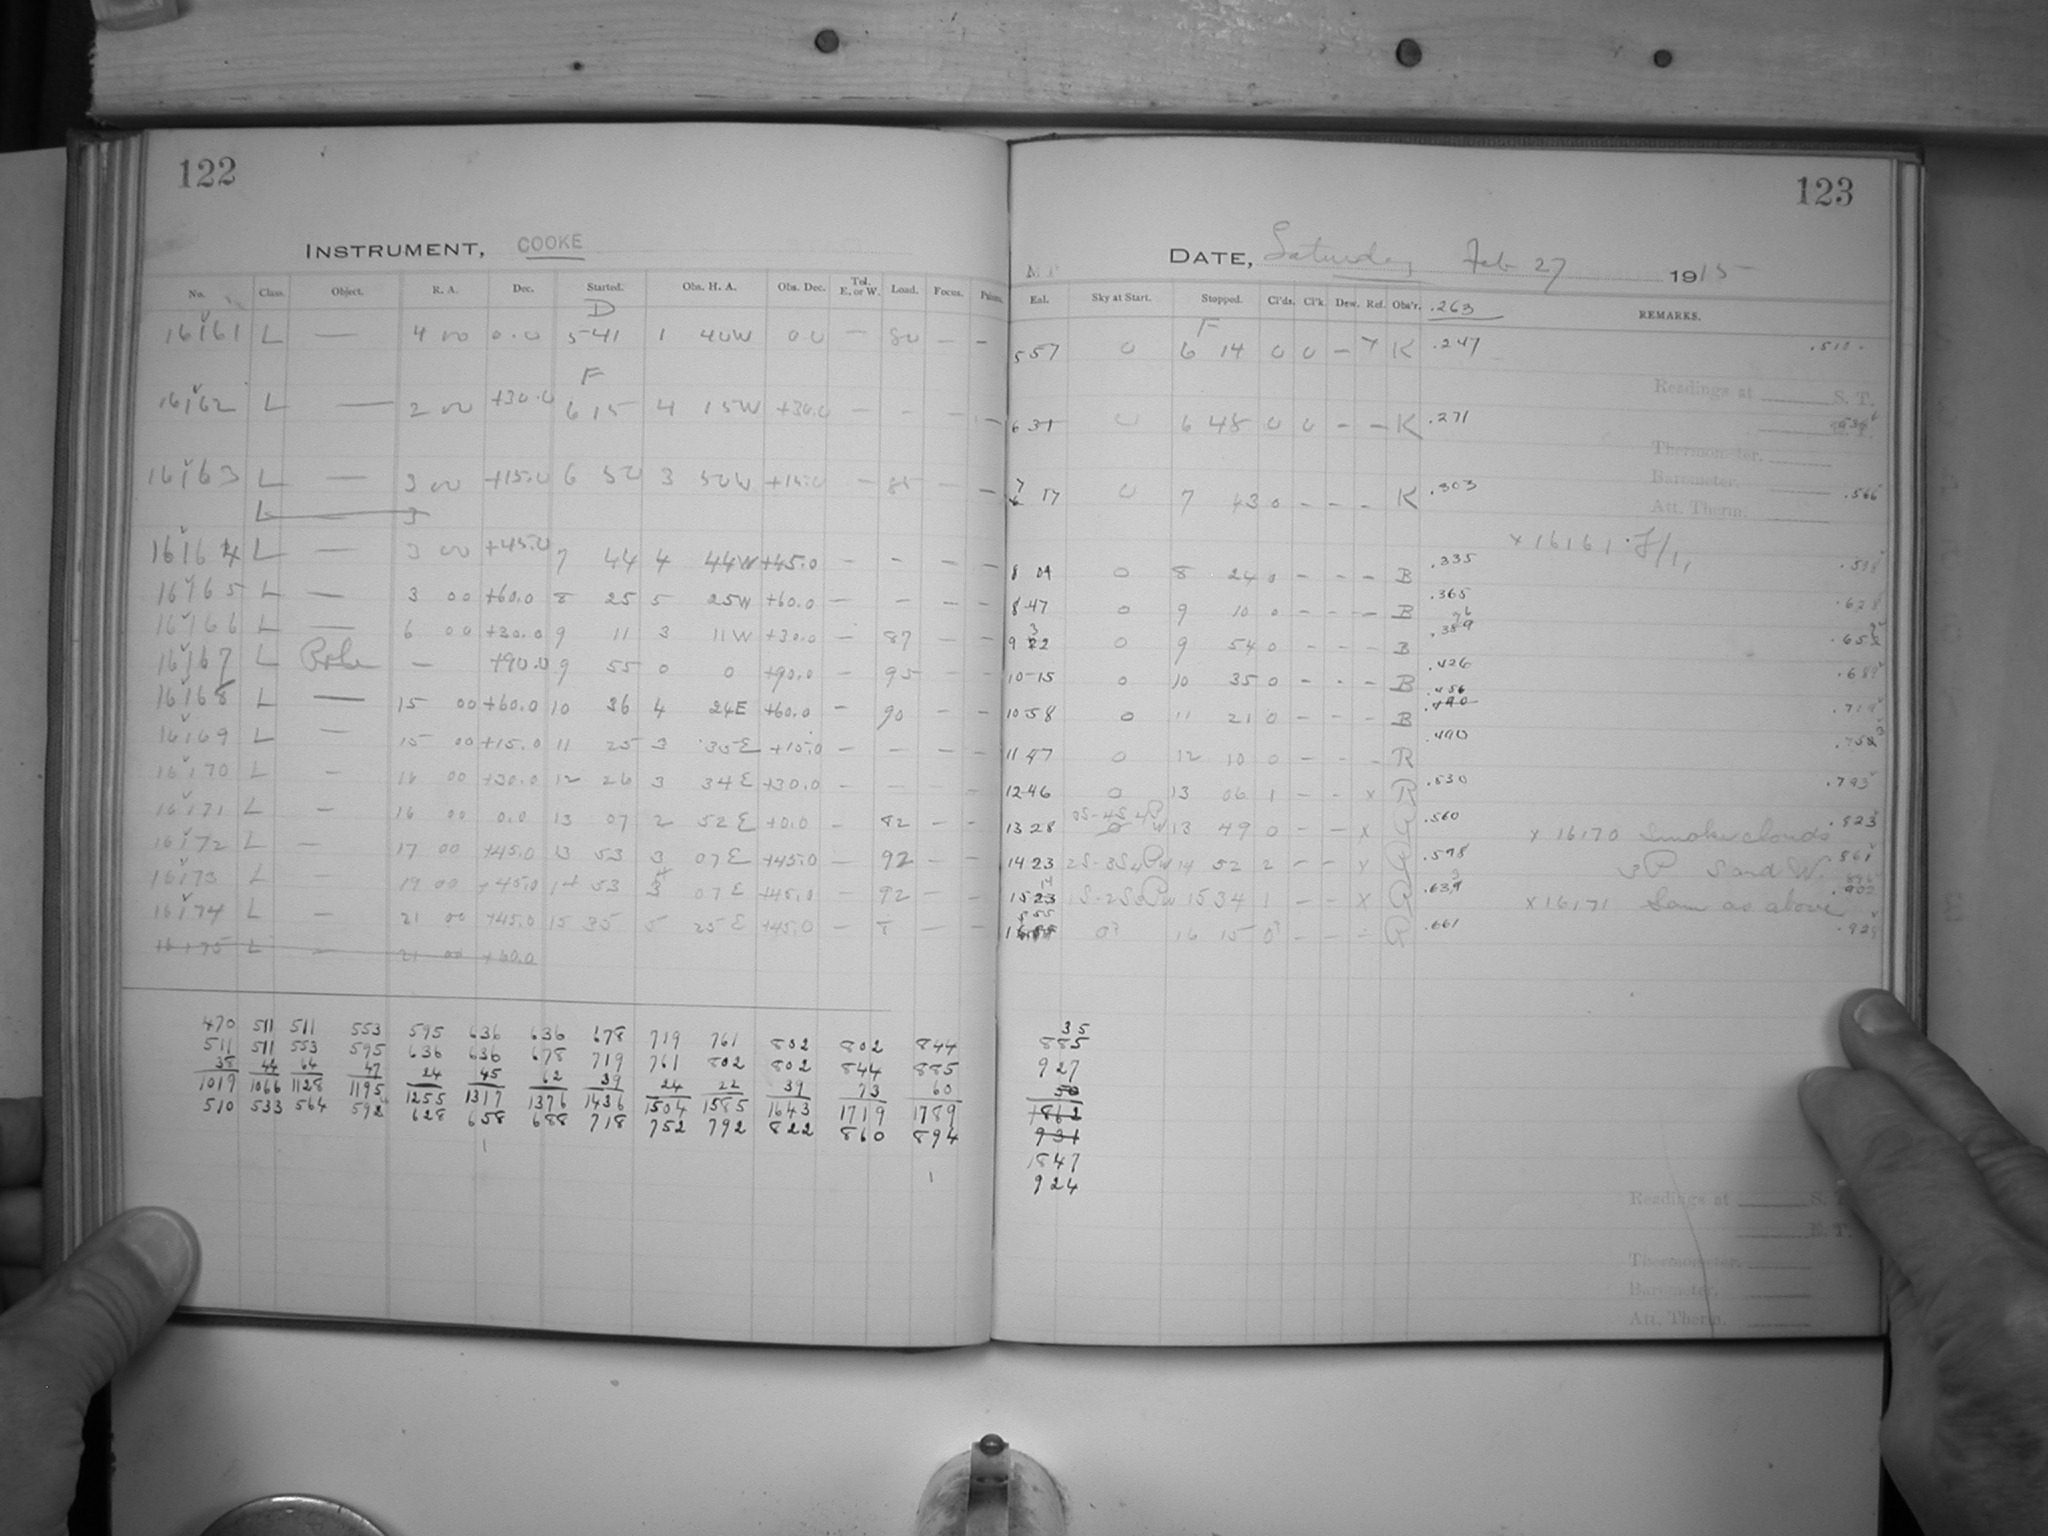 122
INSTRUMENT, COOKE
No. Class. Object. R. A. Dec. Started. Obs. H. A. Obs. Dec. Tel. E. or W. Load. Focus.
D
16161 L — 4 00 0.0 5 41 1 40W 0.0 — 80 — —
F
16162 L — 2 00 +30.0 6 15 4 15W +30.0 — — — —
16163 L — 3 00 +15.0 6 50 3 50W +15.0 — 85 — —
L — 3
16164 L — 3 00 +45.0 7 44 4 44W +45.0 — — — —
16165 L — 3 00 +60.0 8 25 5 25W +60.0 — — — —
16166 L — 6 00 +30.0 9 11 3 11W +30.0 — 87 — —
16167 L Pole — +90.0 9 55 0 0 +90.0 — 95 — —
16168 L — 15 00 +60.0 10 36 4 24E +60.0 — 90 — —
16169 L — 15 00 +15.0 11 25 3 35E +15.0 — — — —
16170 L — 16 00 +30.0 12 26 3 34E +30.0 — — — —
16171 L — 16 00 0.0 13 07 2 52E +0.0 — 82 — —
16172 L — 17 00 +45.0 13 53 3 07E +45.0 — 92 — —
16173 L — 19 00 +45.0 14 53 07E +45.0 — 92 — —
16174 L — 21 00 +45.0 15 35 5 25E +45.0 — — —
16175 L — 21 00 +60.0
470 511 511 553 595 636 636 678 719 761 802 802 844
511 511 553 595 636 636 678 719 761 802 802 844 885
38 44 64 47 24 45 62 39 24 22 39 73 60
1019 1066 1128 1195 1255 1317 1376 1436 1504 1585 1643 1719 1789
510 533 564 592 628 658 688 718 752 792 822 860 894
123
DATE, Saturday Feb 27 1915
Eal. Sky at Start. Stopped. Cl'ds. Cl'k. Dew. Ref. Obs'r. .263 REMARKS.
F
5 57 0 6 14 0 0 — K .247 .510
Readings at S. T.
6 31 0 6 48 0 0 — — K .271
Thermometer.
Barometer.
7 17 0 7 43 0 — — — K .303 .566
Att. Therm.
x 16161
8 04 0 8 24 0 — — — B .335 .598
8 47 0 9 10 0 — — — B .365 .628
9 32 0 9 54 0 — — — B
10 15 0 10 35 0 — — — B .426 .689
10 58 0 11 21 0 — — — B .456 .719
11 47 0 12 10 0 — — — R .490
12 46 0 13 06 1 — — x R .530 .793
13 28 13 49 0 — — x R .560 .823
x 16170 Smoke clouds
14 23 14 52 2 — — x R .598 .861
3P S and W.
15 14 15 34 1 — — x R
x 16171 Same as above
15 55 0? 16 15 0? — — — R .661
35
885
927
50
1862
931
1847
924
Readings at S. T.
E. T.
Thermometer.
Barometer.
Att. Therm.